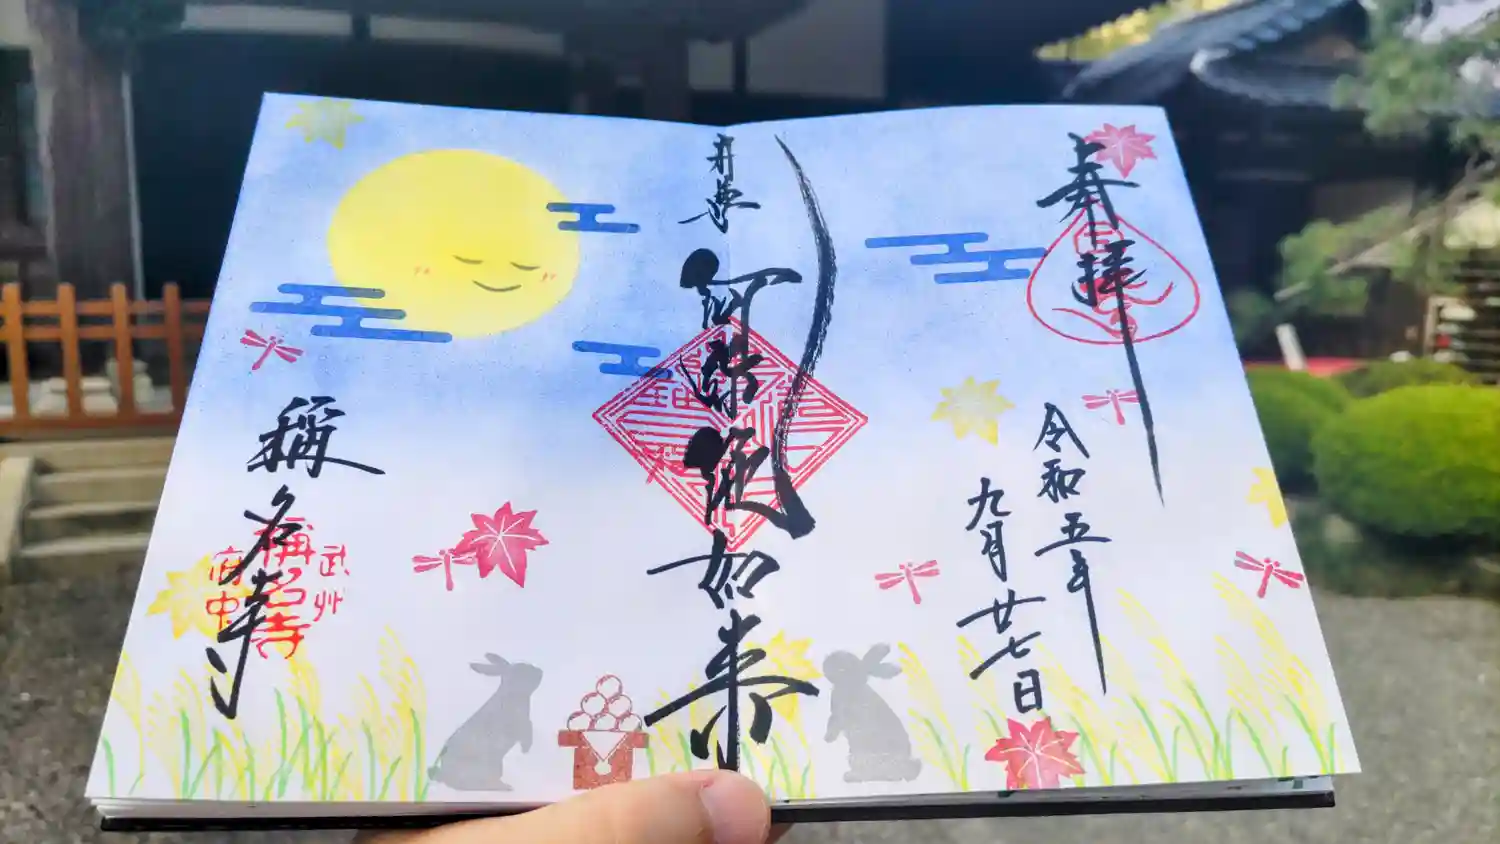 奉拝
令和五年
九月廿七日
阿彌陀如来
稱名寺
武州
稱名寺
府中